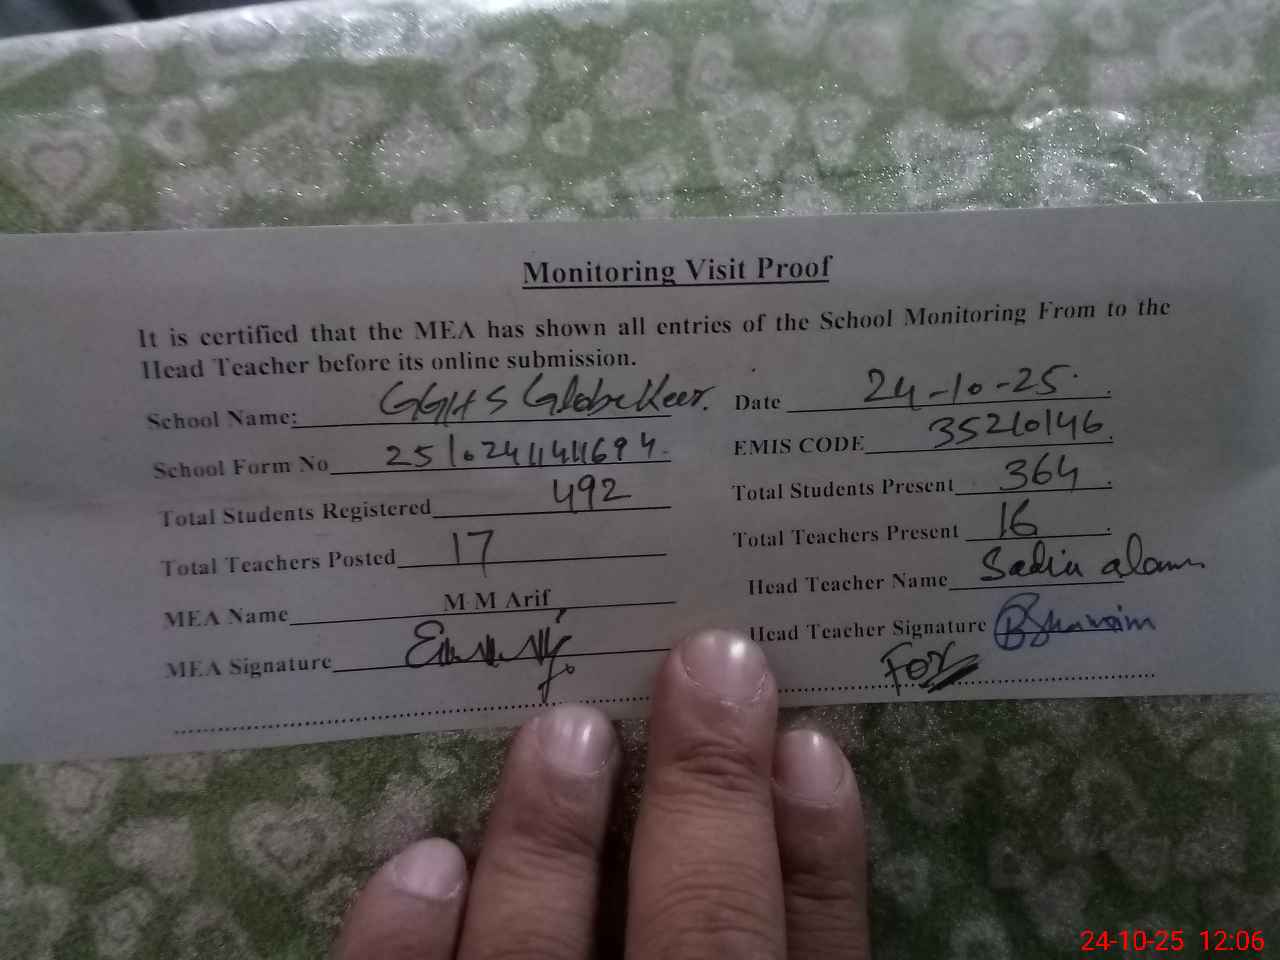 Monitoring Visit Proof
It is certified that the MEA has shown all entries of the School Monitoring From to the
Head Teacher before its online submission.
School Name: GGHS Globe Keer. Date 24-10-25.
School Form No EMIS CODE 35210146
Total Students Registered 492 Total Students Present 364
Total Teachers Posted 17 Total Teachers Present 16
MEA Name M M Arif Head Teacher Name Sadia alam
MEA Signature Head Teacher Signature
For
24-10-25 12:06